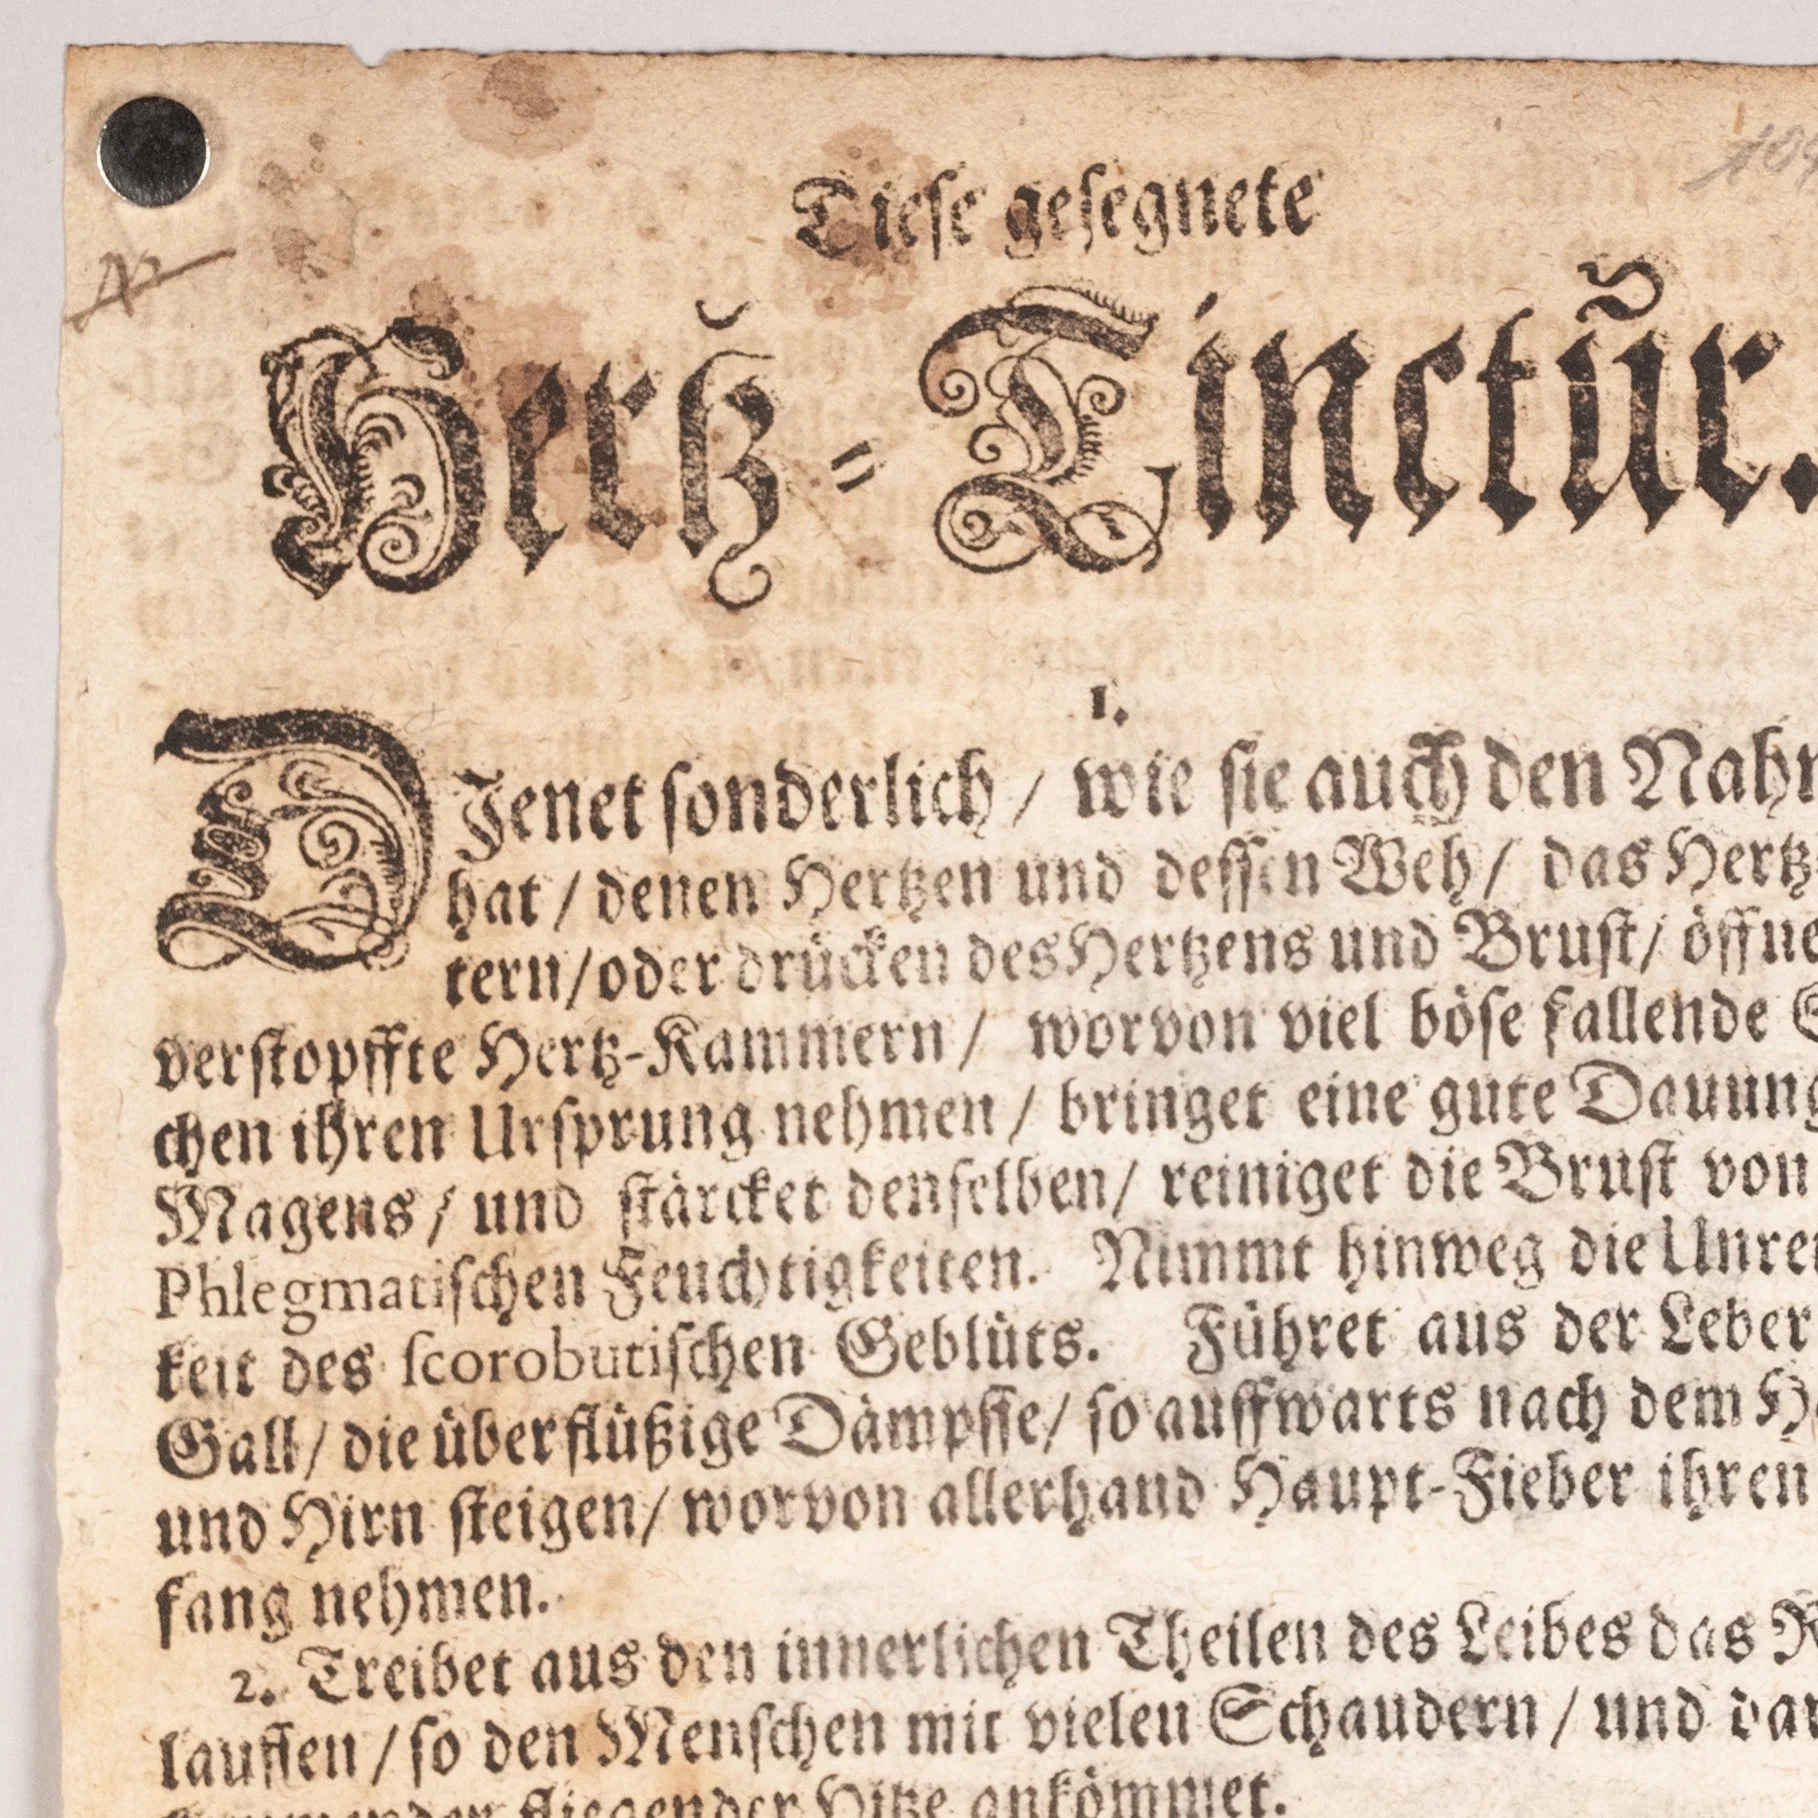 109
Az
Diese gesegnete
Hertz-Tinctur.
1.
DJenet sonderlich / wie sie auch den Nahm
hat / denen Hertzen und dessen Weh / das Hertz-
tern / oder drücken des Hertzens und Brust / öffne
verstopffte Hertz-Kammern / worvon viel böse fallende S
chen ihren Ursprung nehmen / bringet eine gute Dauung
Magens / und stärcket denselben / reiniget die Brust von
Phlegmatischen Feuchtigkeiten. Nimmt hinweg die Unrei
keit des scorobutischen Geblüts. Führet aus der Leber
Gall / die überflüßige Dämpffe / so auffwarts nach dem H
und Hirn steigen / worvon allerhand Haupt-Fieber ihren
fang nehmen.
2. Treibet aus den innerlichen Theilen des Leibes das R
lauffen / so den Menschen mit vielen Schaudern / und dar
fliegender Hitze ankömmet.